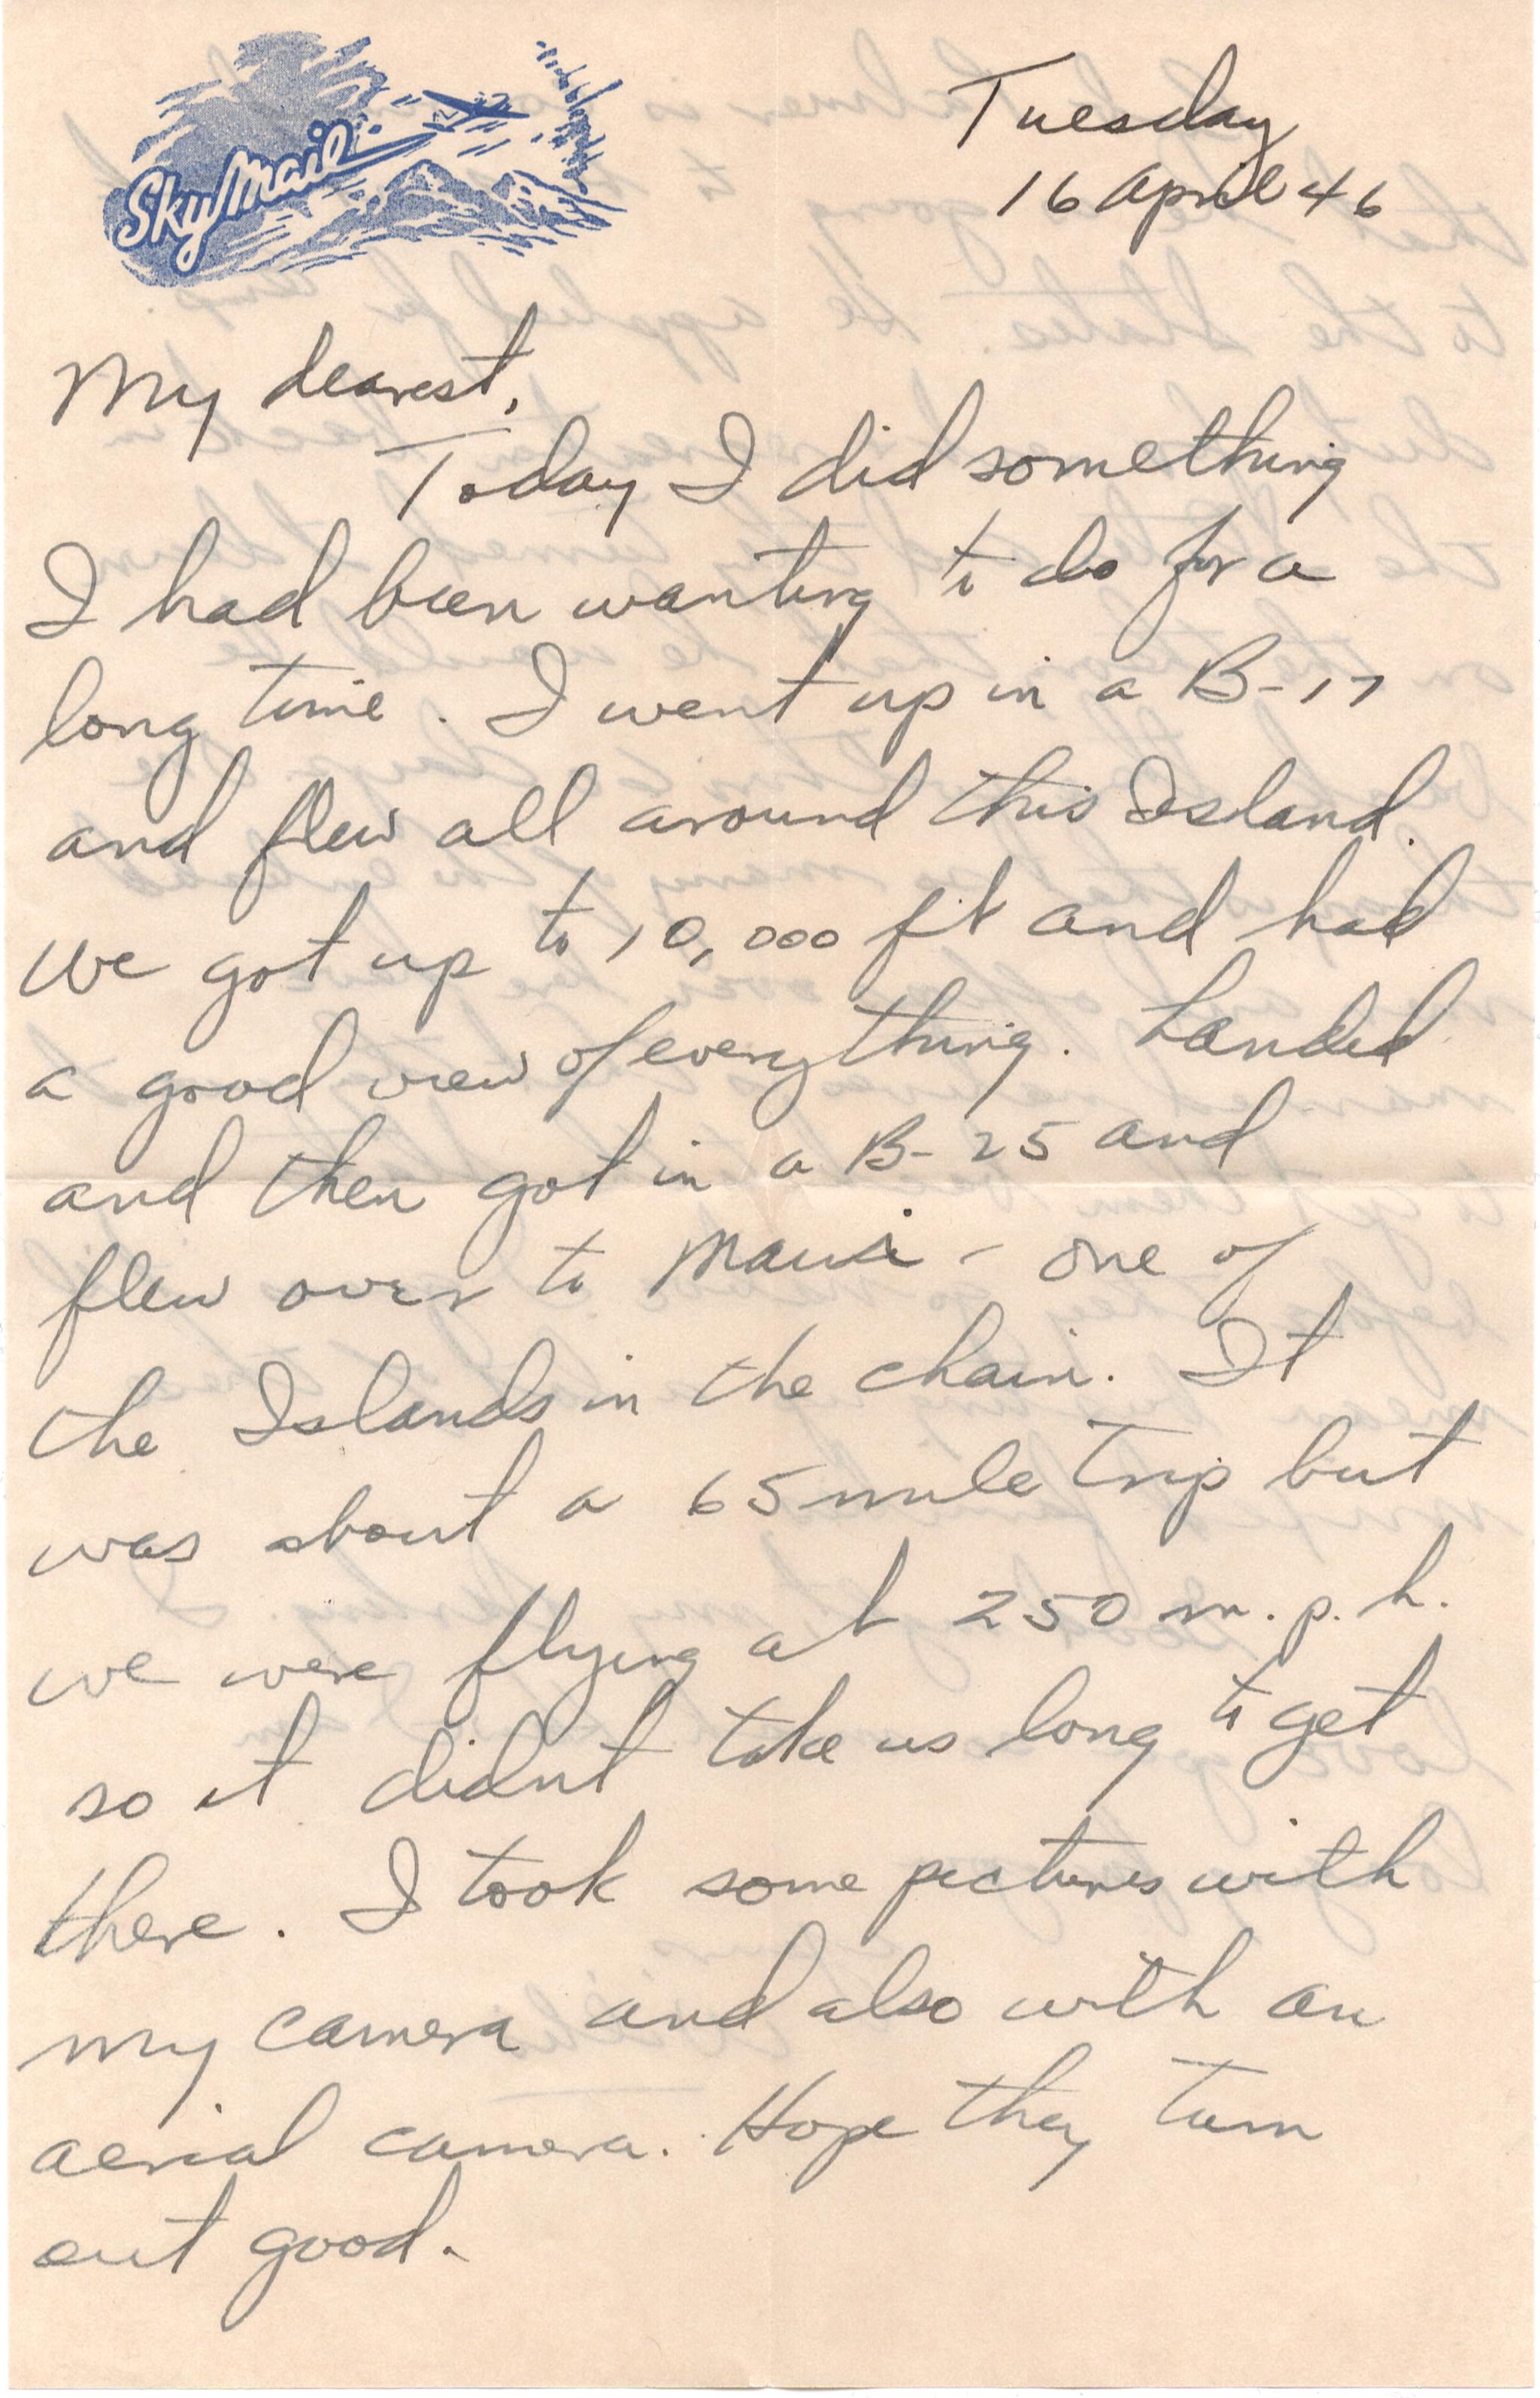 SkyMail
Tuesday
16 April 46
My dearest,
Today I did something
I had been wanting to do for a
long time. I went up in a B-17
and flew all around this Island.
We got up to 10,000 ft and had
a good view of everything. Landed
and then got in a B-25 and
flew over to Maui - one of
the Islands in the chain. It
was about a 65 mile trip but
we were flying at 250 m.p.h.
so it didnt take us long to get
there. I took some pictures with
my camera and also with an
aerial camera. Hope they turn
out good.